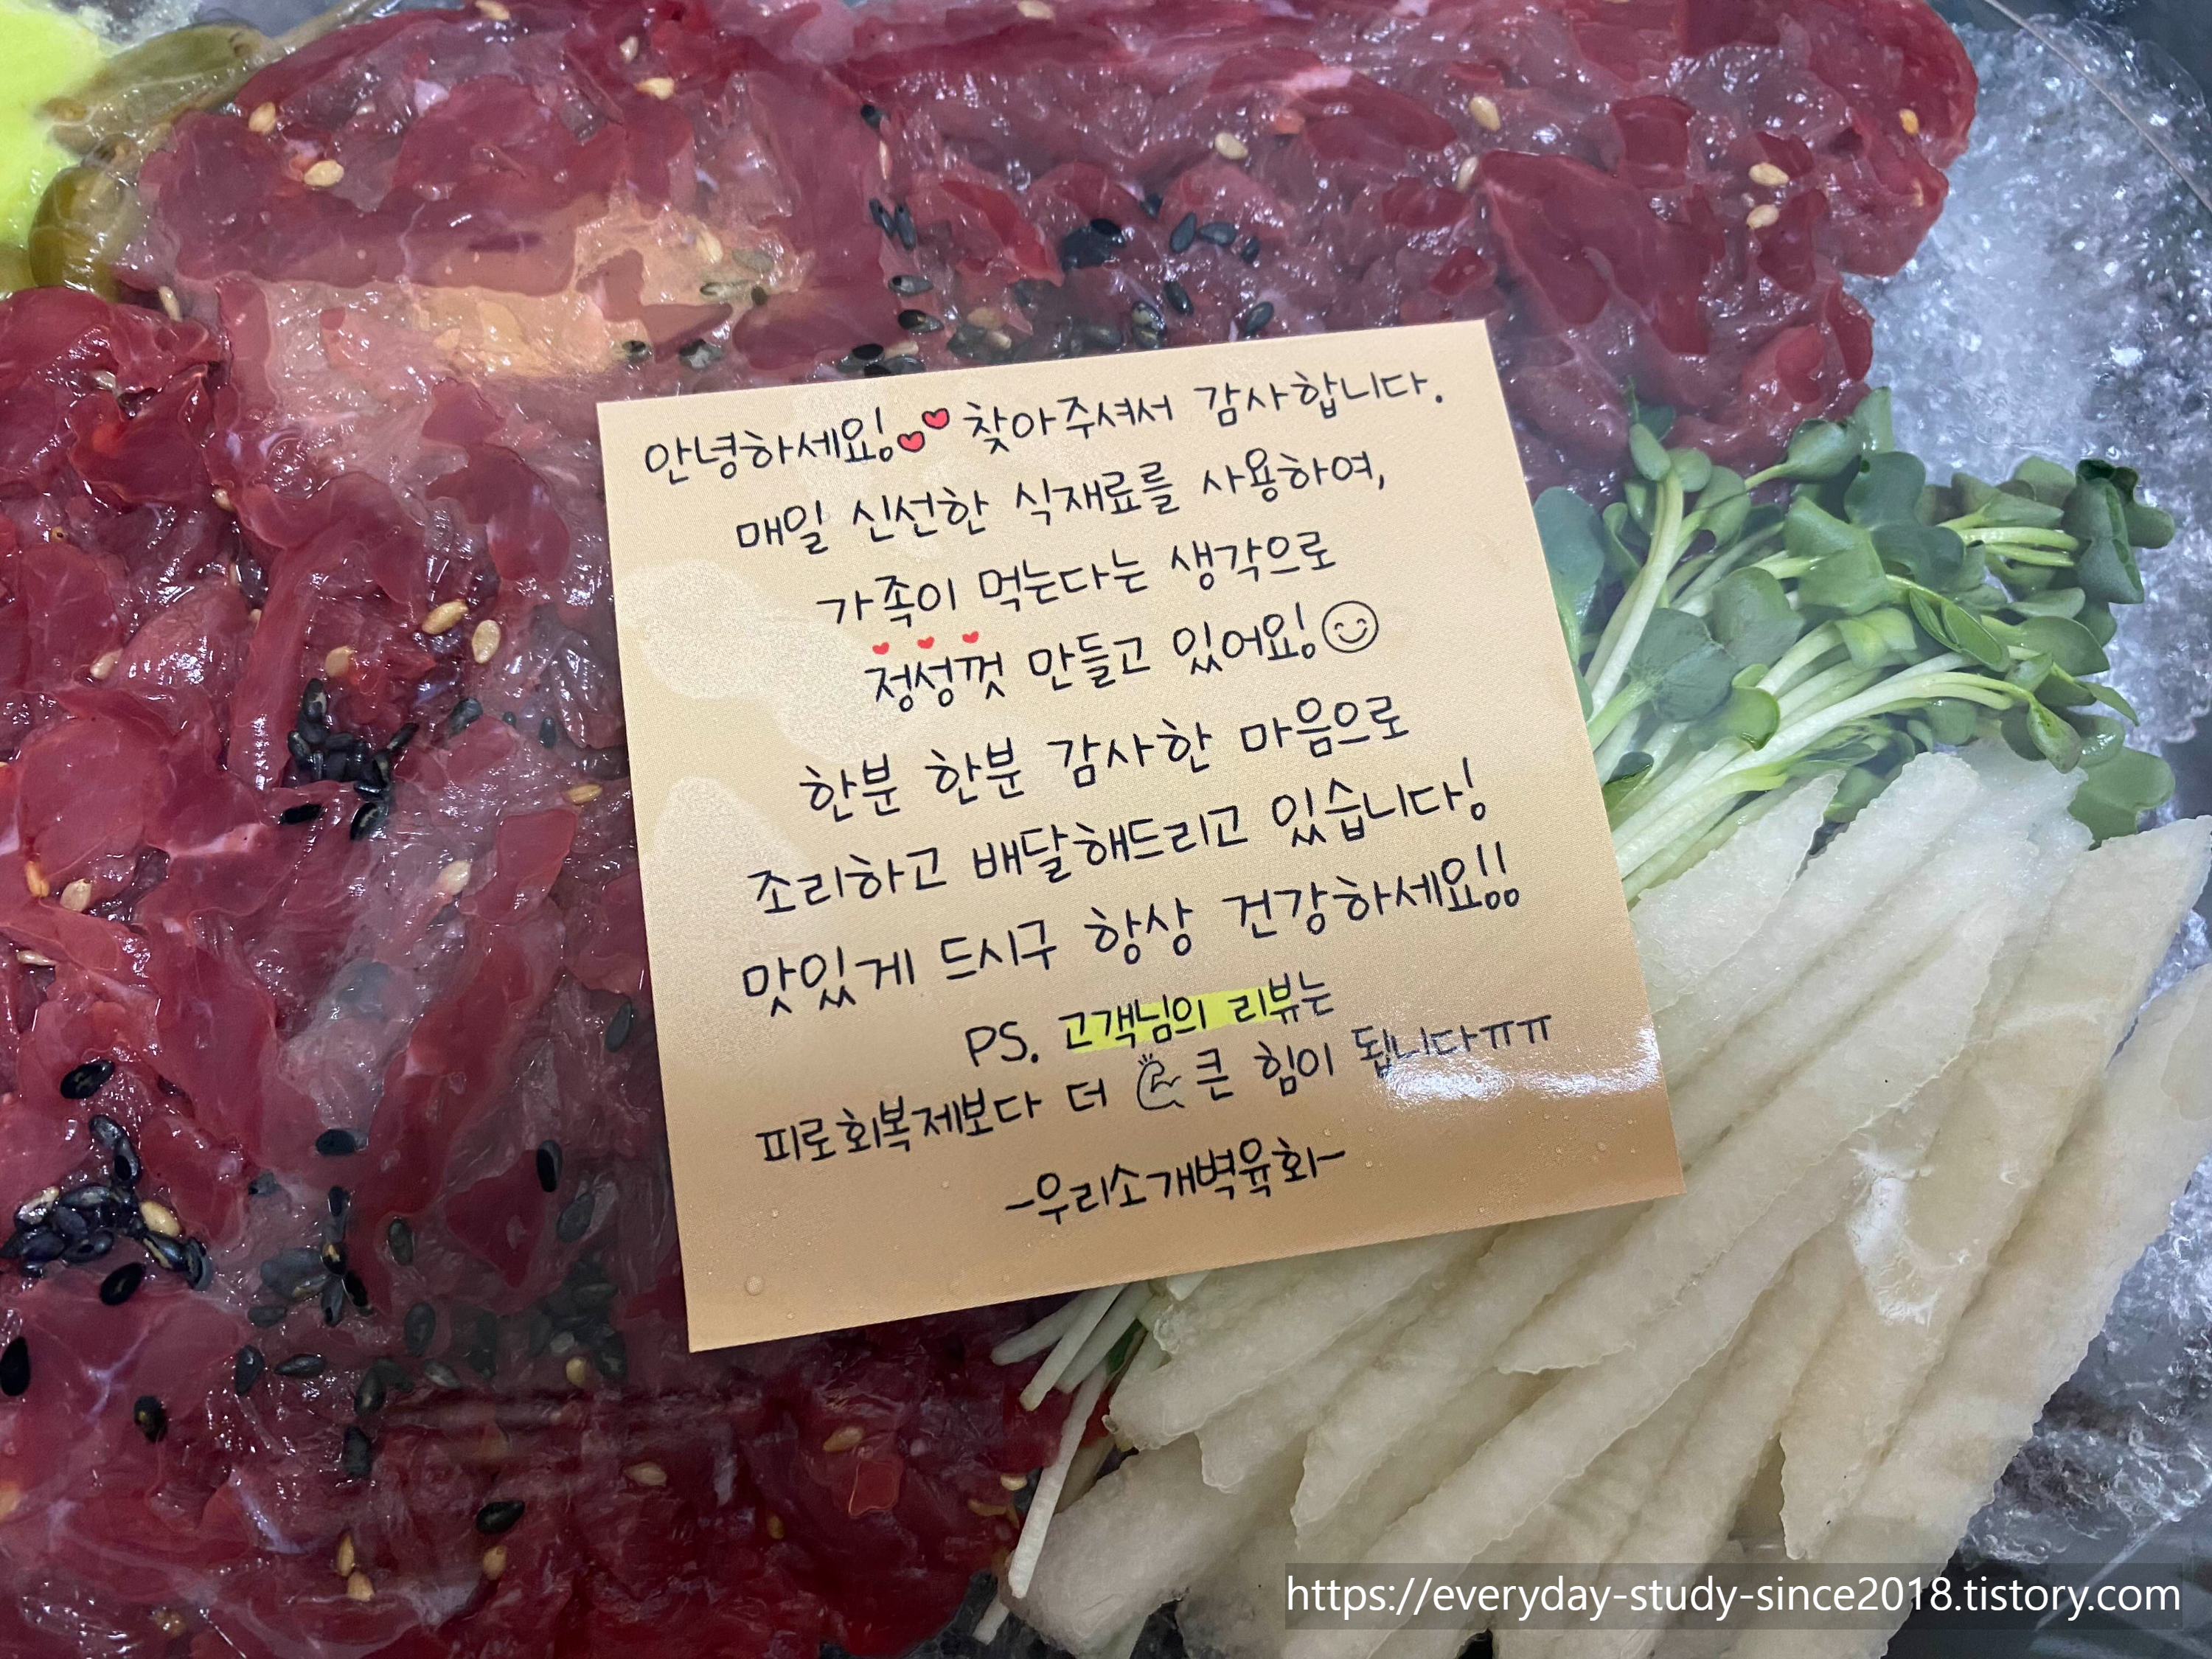 안녕하세요! 찾아주셔서 감사합니다.
매일 신선한 식재료를 사용하여,
가족이 먹는다는 생각으로
정성껏 만들고 있어요!
한분 한분 감사한 마음으로
조리하고 배달해드리고 있습니다!
맛있게 드시구 항상 건강하세요!!
PS. 고객님의 리뷰는
피로회복제보다 더 큰 힘이 됩니다ㅠㅠ
-우리소개벽육회-
https://everyday-study-since2018.tistory.com